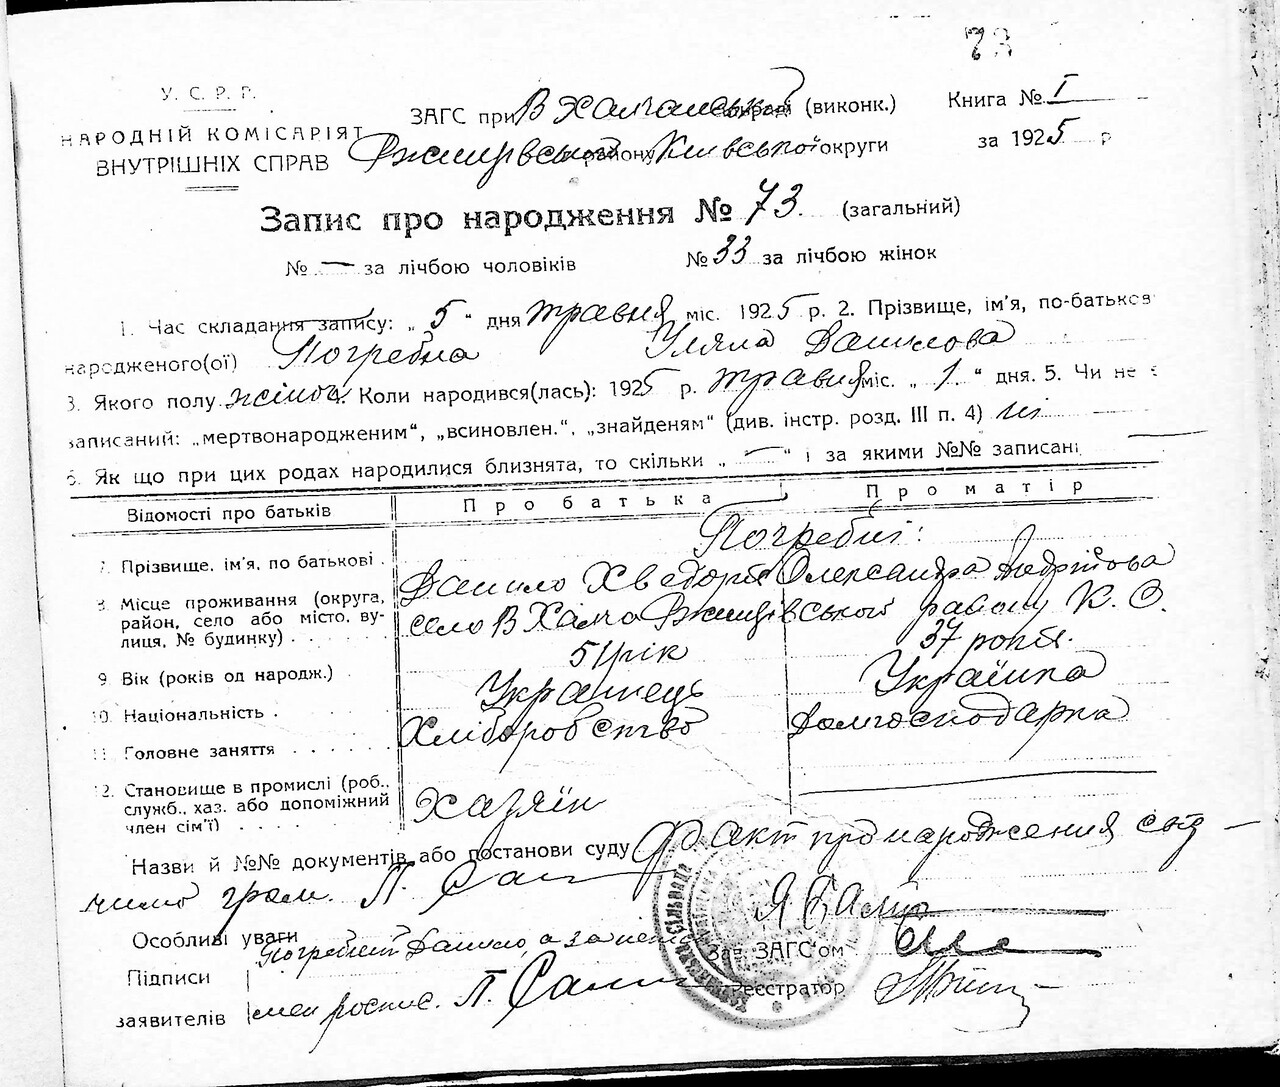 73
У. С. Р. Р.
НАРОДНІЙ КОМІСАРІЯТ
ВНУТРІШНІХ СПРАВ
ЗАГС при В Халчанській сільраді (виконк.)
Ржищівського району Київської округи
Книга № I
за 1925 р
Запис про народження № 73. (загальний)
№ — за лічбою чоловіків № 33 за лічбою жінок
1. Час складання запису: „ 5 “ дня травня міс. 1925 р. 2. Прізвище, ім'я, по-батьков
народженого(ої) Погребна Уляна Данилова
3. Якого полу жіноч 4. Коли народився(лась): 1925 р. травня міс. „ 1 “ дня. 5. Чи не є
записаний: „мертвонародженим“, „всиновлен.“, „знайденям“ (див. інстр. розд. III п. 4) ні
6. Як що при цих родах народилися близнята, то скільки „ — “ і за якими №№ записані —
Відомості про батьків Про батька Про матір
Погребні:
7. Прізвище, ім'я, по батькові . Данило Хведорів Олександра Андрійова
8. Місце проживання (округа, район, село або місто, вулиця, № будинку) . . село В Халча Ржищівського району К. О.
9. Вік (років од народж.) . 51 рік 37 років.
10. Національність . Українець Українка
11. Головне заняття . . . . . . Хліборобство Домгосподарка
12. Становище в промислі (роб., служб., хаз. або допоміжний член сім'ї) . . . . Хазяїн —
Назви й №№ документів або постанови суду Факт про народження свід-
чимо гром. П.
Особливі уваги
Підписи
заявителів
Погребний Данило, а за
роспис. П.
Зав. ЗАГС'ом
Реєстратор